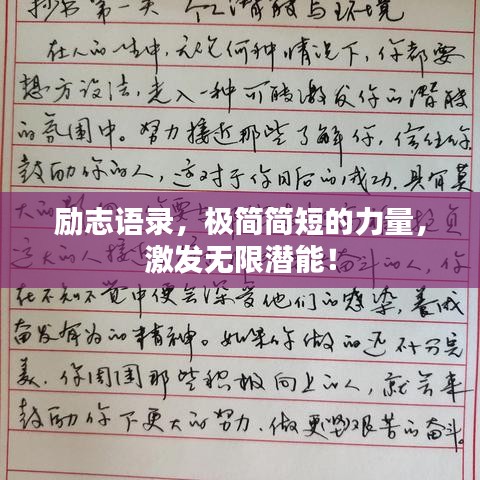 抄书第一天 个人潜能与环境
在人的一生中,无论何种情况下,你都要
想方设法,走入一种可能激发你的潜能
的氛围中。努力接近那些了解你,信任你,
鼓励你的人,这对于你日后的成功,具有莫
大的
励志语录，极简简短的力量，
激发无限潜能！
奋斗的人,你
在不知不觉中便会深受他们的感染,养成
奋发有为的精神。如果你做的还不十分完
美,你周围那些积极向上的人,就会来
鼓励你下更大的努力,做更坚艰苦的奋斗。